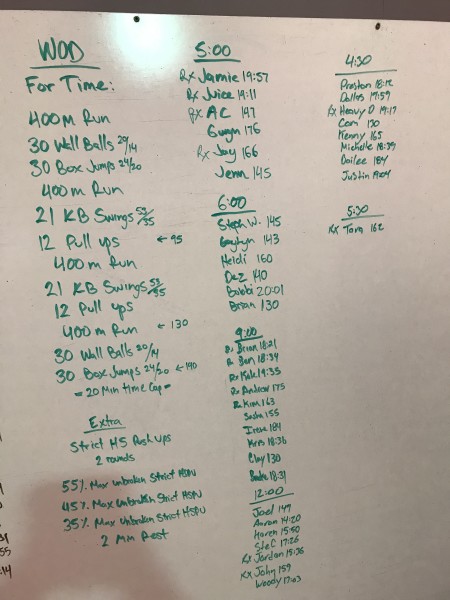 WOD
For Time:
400m Run
30 Wall Balls 20/14
30 Box Jumps 24/20
400m Run
21 KB Swings 53/35
12 Pull ups ← 95
400m Run
21 KB Swings 53/35
12 Pull ups
400m Run ← 130
30 Wall Balls 20/14
30 Box Jumps 24/20 ← 190
= 20 Min time Cap =
Extra
Strict HS Push ups
2 rounds
55% Max unbroken Strict HSPU
45% Max Unbroken Strict HSPU
35% Max Unbroken Strict HSPU
2 Min Rest
5:00
Rx Jamie 19:57
Rx Juice 19:11
Rx AC 147
Gwyn 176
Rx Jay 166
Jenn 145
6:00
Steph W. 145
143
Heidi 160
Dez 140
Bobbi 20:01
Brian 130
9:00
Rx Brian 18:21
Rx Ben 18:34
Rx Kyle 19:35
Rx Andrew 175
Rx Kim 163
Sasha 155
Irene 184
Kris 18:36
Clay 130
18:31
12:00
Joel 149
Aaron 14:20
Haren 15:50
Stef 17:26
Rx Jordan 15:36
Rx John 159
Woody 17:03
4:30
Preston 18:12
Dallas 17:59
Rx Heavy D 19:17
Cam 130
Kenny 165
Michelle 18:39
Dailee 184
Justin 19:04
5:30
Rx Tara 162